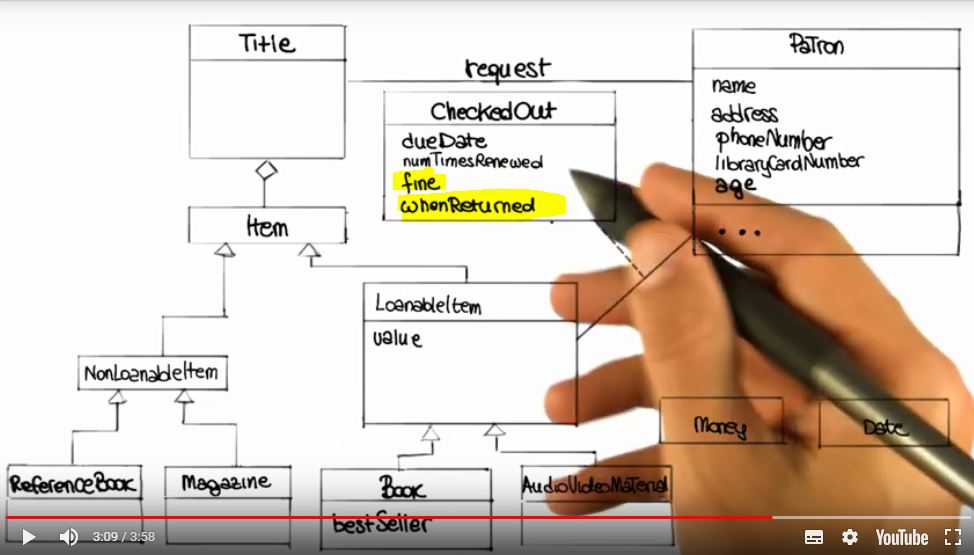 Title
request
Patron
name
address
phoneNumber
libraryCardNumber
age
...
CheckedOut
dueDate
numTimesRenewed
fine
whenReturned
Item
LoanableItem
value
NonLoanableItem
Money
Date
ReferenceBook
Magazine
Book
bestSeller
AudioVideoMaterial
3:09 / 3:58
YouTube